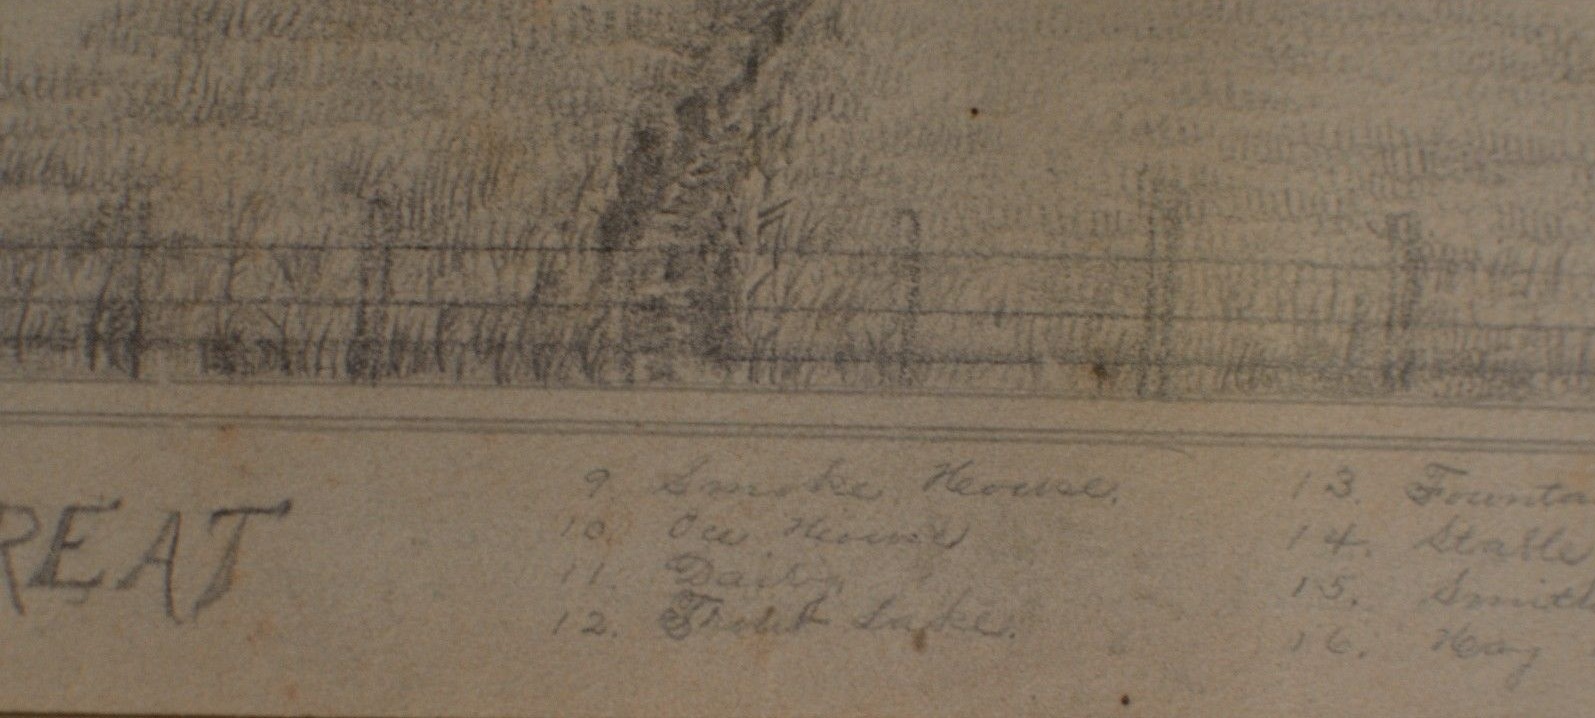 REAT
9. Smoke House.
10. Ice House
11. Dairy
12. Trout Lake.
13. Founta
14. Stable
15. Smith
16. Hay